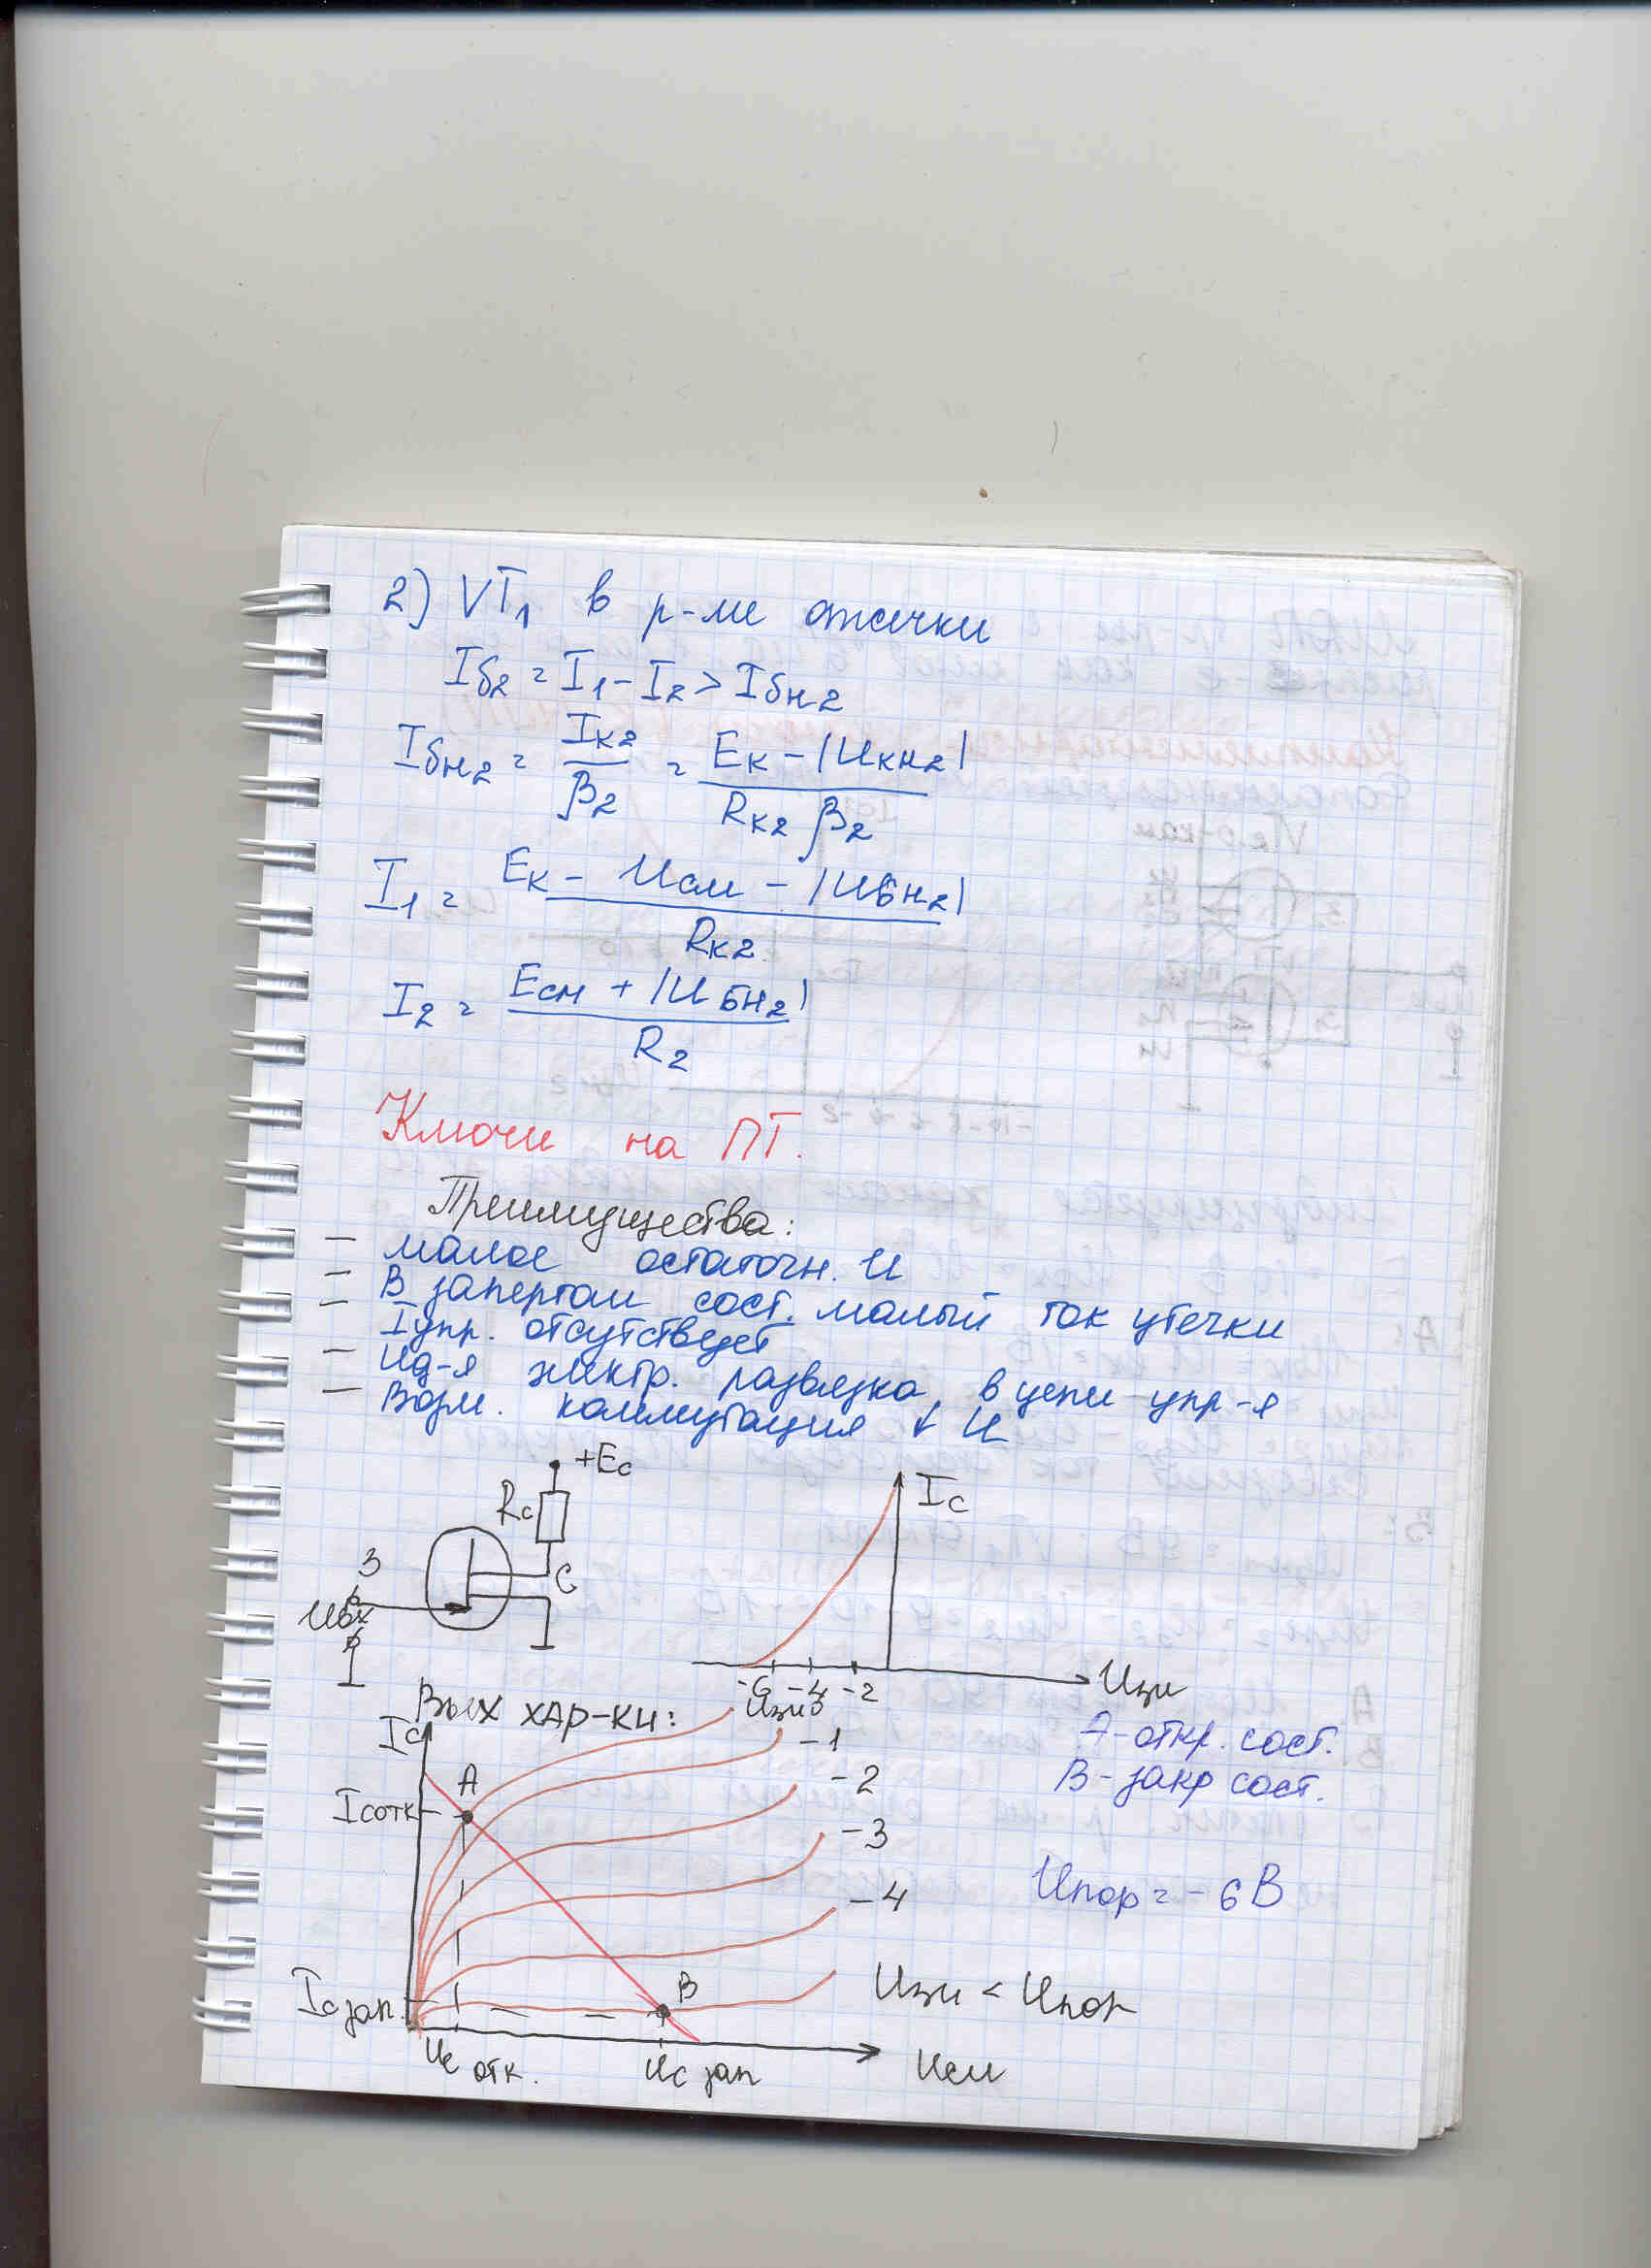 2) VT1 в р-ме отсечки
Iб2 = I1 - I2 > Iбн2
Iбн2 = Iк2 / β2 = Eк - |Uкн2| / Rк2 β2
I1 = Eк - Uсм - |UБн2| / Rк2
I2 = Eсм + |UБн2| / R2
Ключи на ПТ.
Преимущества:
— малое остаточн. U
— В запертом сост. малый ток утечки
— Iупр. отсутствует
— Ид-я электр. развязка в цепи упр-я
— Возм. коммутация ↓ U
+Ec
Rc
З
C
Uвх
Ic
-6 -4 -2
Uзи
Вых хар-ки:
Uзи
Ic
-1
А - откр. сост.
A
-2
В - закр сост.
Iсотк
-3
-4
Uпор = - 6 В
B
Uзи < Uпор
Iс зап.
Uс отк.
Uс зап
Uси